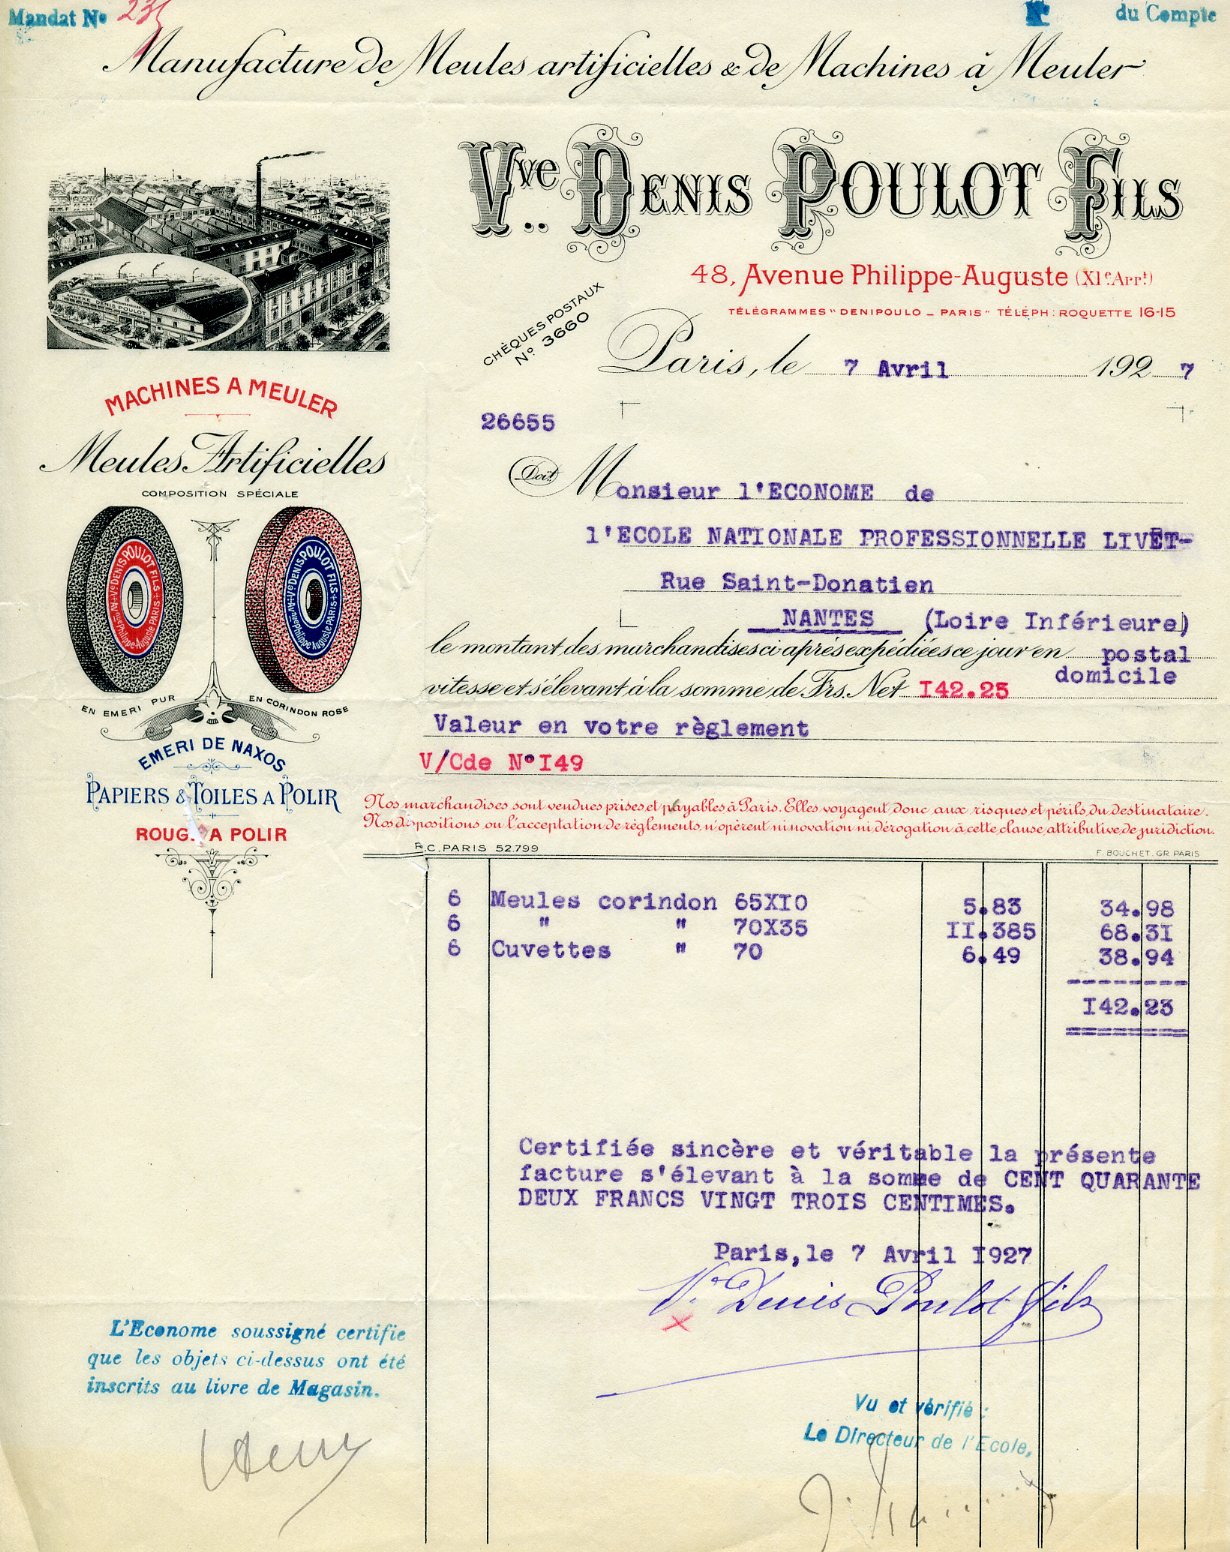 Mandat No 235
No du Compte
Manufacture de Meules artificielles & de Machines à Meuler
Vve Denis Poulot Fils
48, Avenue Philippe-Auguste (XIe Arrt)
TÉLÉGRAMMES "DENIPOULO - PARIS" TÉLÉPH: ROQUETTE 16-15
CHÈQUES POSTAUX
No 3660
Paris, le 7 Avril 1927
MACHINES A MEULER
Meules Artificielles
COMPOSITION SPÉCIALE
Vve DENIS POULOT FILS
Av. Philippe-Auguste PARIS
Vve DENIS POULOT FILS
Avenue Philippe-Auguste PARIS
EN EMERI PUR
EN CORINDON ROSE
EMERI DE NAXOS
PAPIERS & TOILES A POLIR
ROUGE A POLIR
26655
Doit Monsieur l'ECONOME de
l'ECOLE NATIONALE PROFESSIONNELLE LIVET-
Rue Saint-Donatien
NANTES (Loire Inférieure)
le montant des marchandises ci après expédiées ce jour en postal
domicile
vitesse et s'élevant à la somme de Frs. Net I42.23
Valeur en votre règlement
V/Cde N° I49
Nos marchandises sont vendues prises et payables à Paris. Elles voyagent donc aux risques et périls du destinataire.
Nos dispositions ou l'acceptation de règlements n'opèrent ni novation ni dérogation à cette clause attributive de juridiction.
R.C. PARIS 52.799
F. BOUCHET. GR. PARIS
6 Meules corindon 65XI0 5.83 34.98
6 " " 70X35 II.385 68.3I
6 Cuvettes " 70 6.49 38.94
I42.23
Certifiée sincère et véritable la présente
facture s'élevant à la somme de CENT QUARANTE
DEUX FRANCS VINGT TROIS CENTIMES.
Paris, le 7 Avril I927
Ve Denis Poulot fils
L'Econome soussigné certifie
que les objets ci-dessus ont été
inscrits au livre de Magasin.
Vu et vérifié :
Le Directeur de l'Ecole,